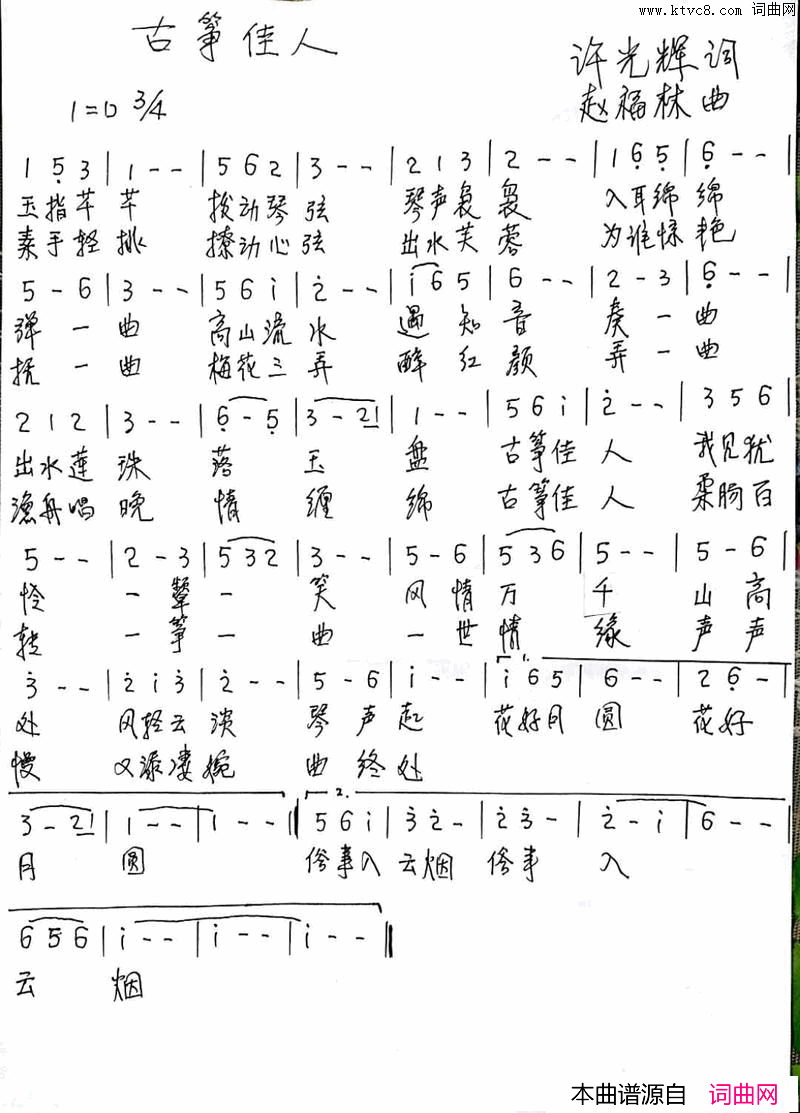 www.ktvc8.com 词曲网
古筝佳人
许光辉词
1=D 3/4
赵福林曲
1 5̣ 3 | 1 - - | 5 6 2 | 3 - - | 2 1 3 | 2 - - | 1 6̣ 5̣ | 6̣ - - |
玉指芊芊 拨动琴弦 琴声袅袅 入耳绵绵
素手轻挑 撩动心弦 出水芙蓉 为谁惊艳
5 - 6 | 3 - - | 5 6 i | 2̇ - - | i 6 5 | 6 - - | 2 - 3 | 6̣ - - |
弹一曲 高山流水 遇知音 奏一曲
抚一曲 梅花三弄 醉红颜 弄一曲
2 1 2 | 3 - - | 6̣ - 5̣ | 3 - 2 1 | 1 - - | 5 6 i | 2̇ - - | 3 5 6 |
出水莲珠落玉盘 古筝佳人 我见犹
渔舟唱晚情缠绵 古筝佳人 柔肠百
5 - - | 2 - 3 | 5 3 2 | 3 - - | 5 - 6 | 5 3 6 | 5 - - | 5 - 6 |
怜 一颦一笑 风情万千 山高
转 一筝一曲 一世情缘 声声
1.
3̇ - - | 2̇ i 3̇ | 2̇ - - | 5 - 6 | i - - | i 6 5 | 6 - - | 2 6̣ - |
处 风轻云淡 琴声起 花好月圆 花好
慢 又添凄婉 曲终处
2.
3 - 2 1 | 1 - - | 1 - - :‖ 5 6 i | 3̇ 2̇ - | 2̇ 3̇ - | 2̇ - i | 6 - - |
月圆 俗事入云烟 俗事入
6 5 6 | i - - | i - - | i - - ‖
云烟
本曲谱源自 词曲网